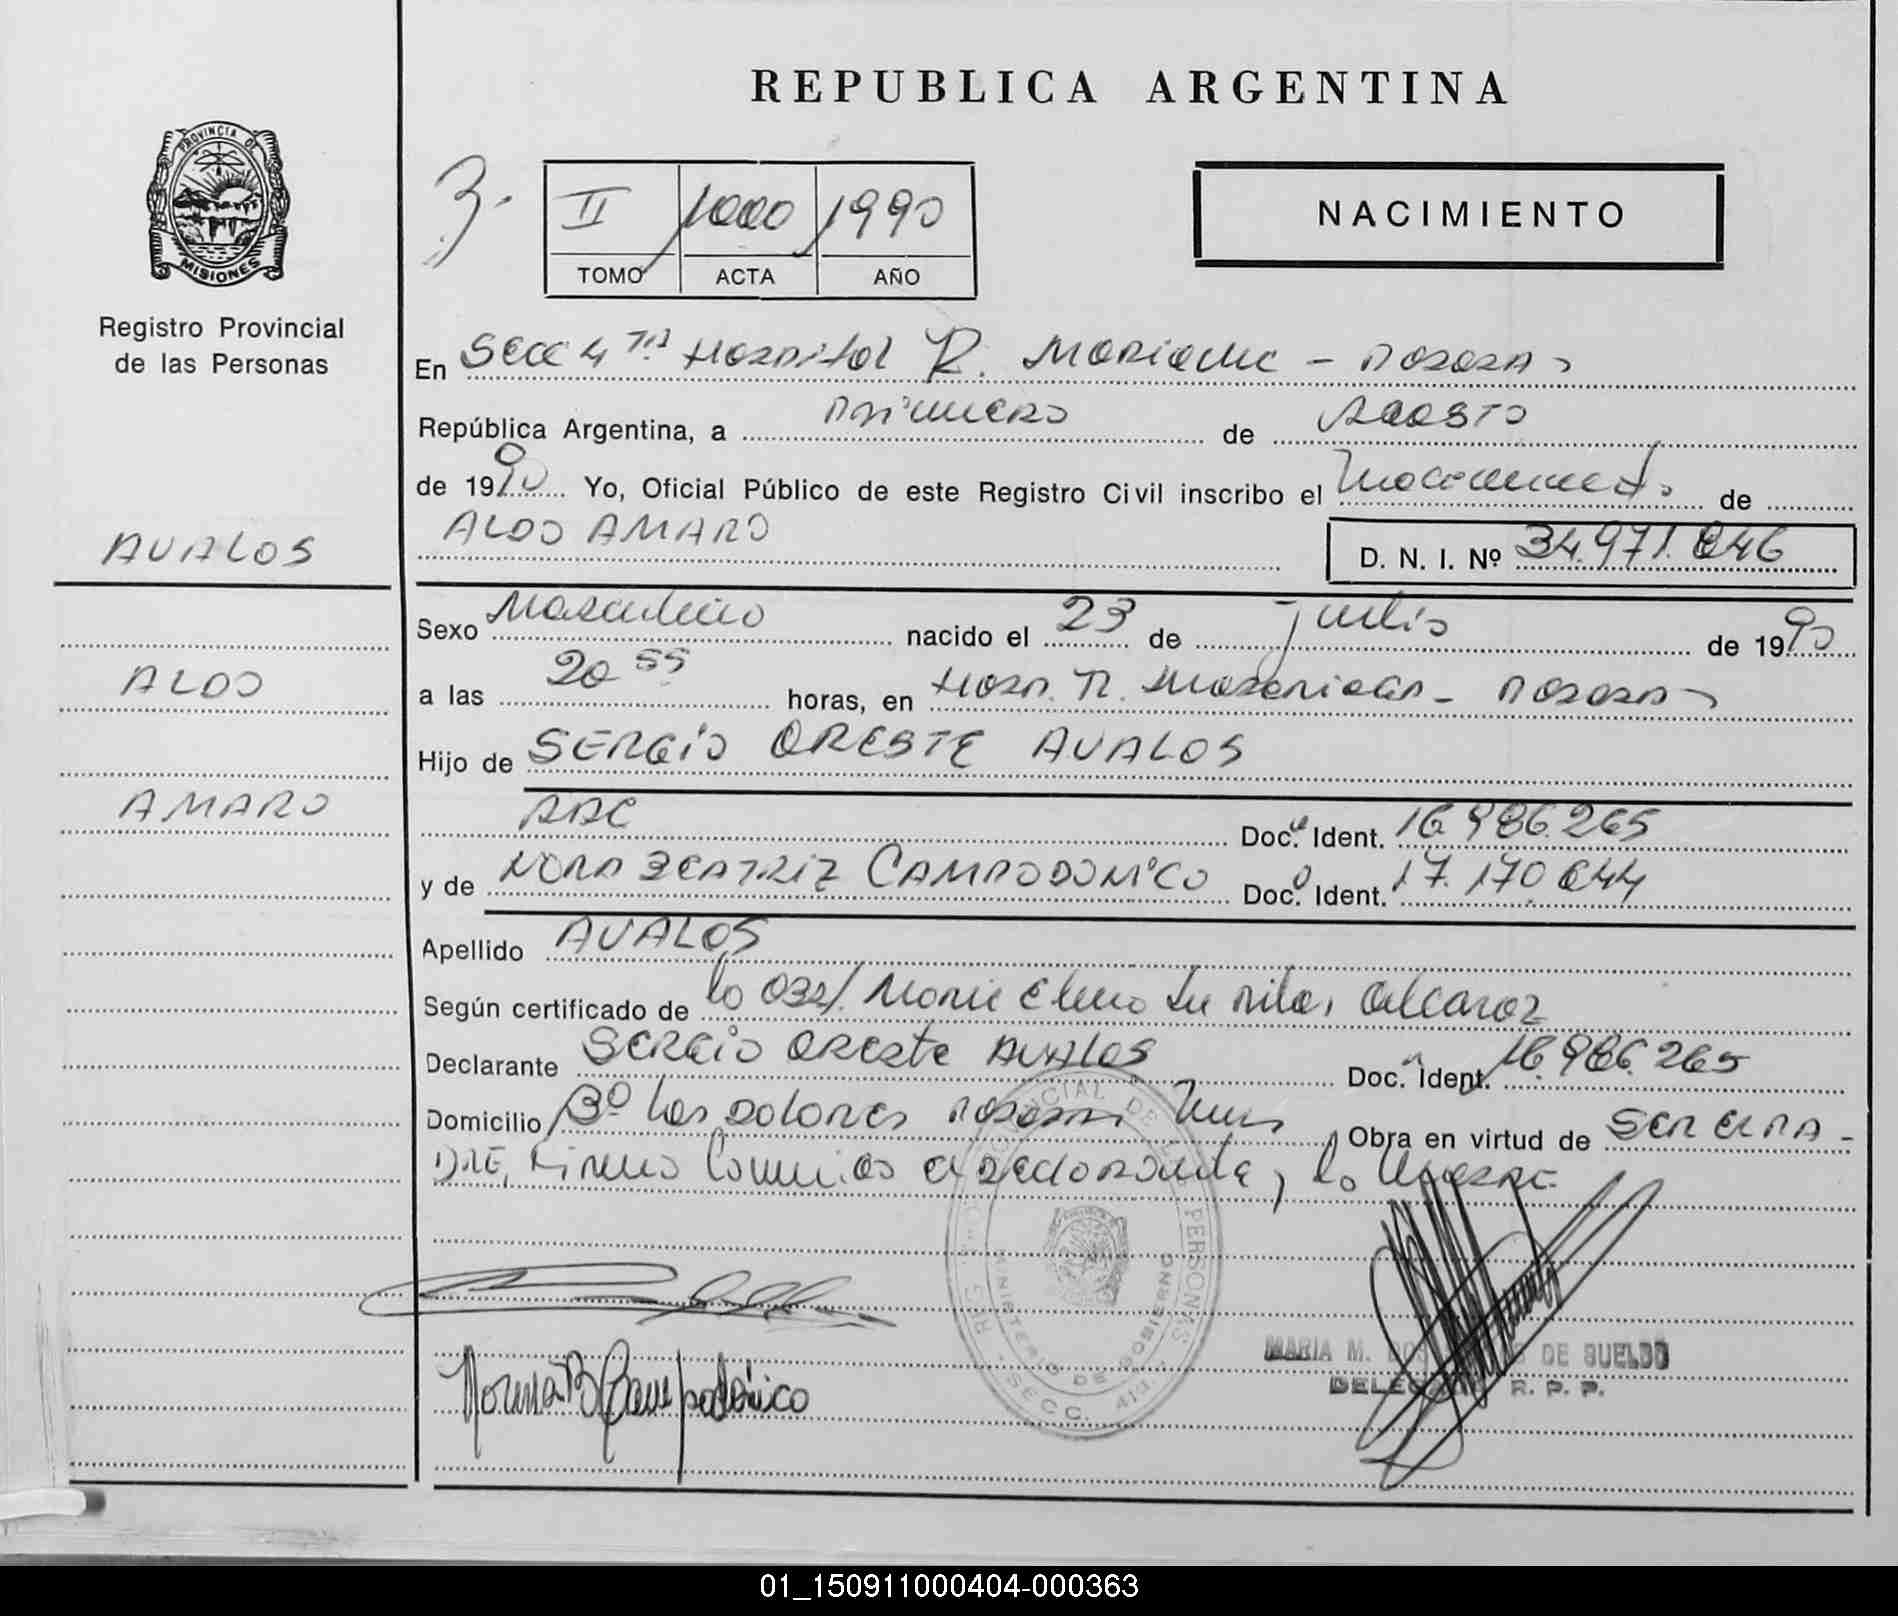 REPUBLICA ARGENTINA
PROVINCIA DE
MISIONES
Registro Provincial
de las Personas
3.
II 1000 1990
TOMO ACTA AÑO
NACIMIENTO
En Secc 4ta Hospital R. - Posadas
República Argentina, a primero de Agosto
de 1990 Yo, Oficial Público de este Registro Civil inscribo el Nacimiento de
ALDO AMARO
D. N. I. Nº 34.971.046
AVALOS
ALDO
AMARO
Sexo Masculino nacido el 23 de julio de 1990
a las 20 55 horas, en Hosp. R. - Posadas
Hijo de SERGIO ORESTE AVALOS
Doc. Ident. 16.986.265
y de NORA BEATRIZ CAMPODONICO Doc. Ident. 17.170.044
Apellido AVALOS
Según certificado de la Obst. Elena Alcaraz
Declarante SERGIO ORESTE AVALOS Doc. Ident. 16.986.265
Domicilio Bº Los Dolores Posadas Mnes Obra en virtud de SER EL PA-
DRE, Firma Conmigo el declarante, la Madre
REG. PROVINCIAL DE LAS PERSONAS
MINISTERIO DE GOBIERNO
SECC. 4ta.
Norma B Campodónico
MARIA M. DOS DE SUELDO
R. P. P.
01_150911000404-000363